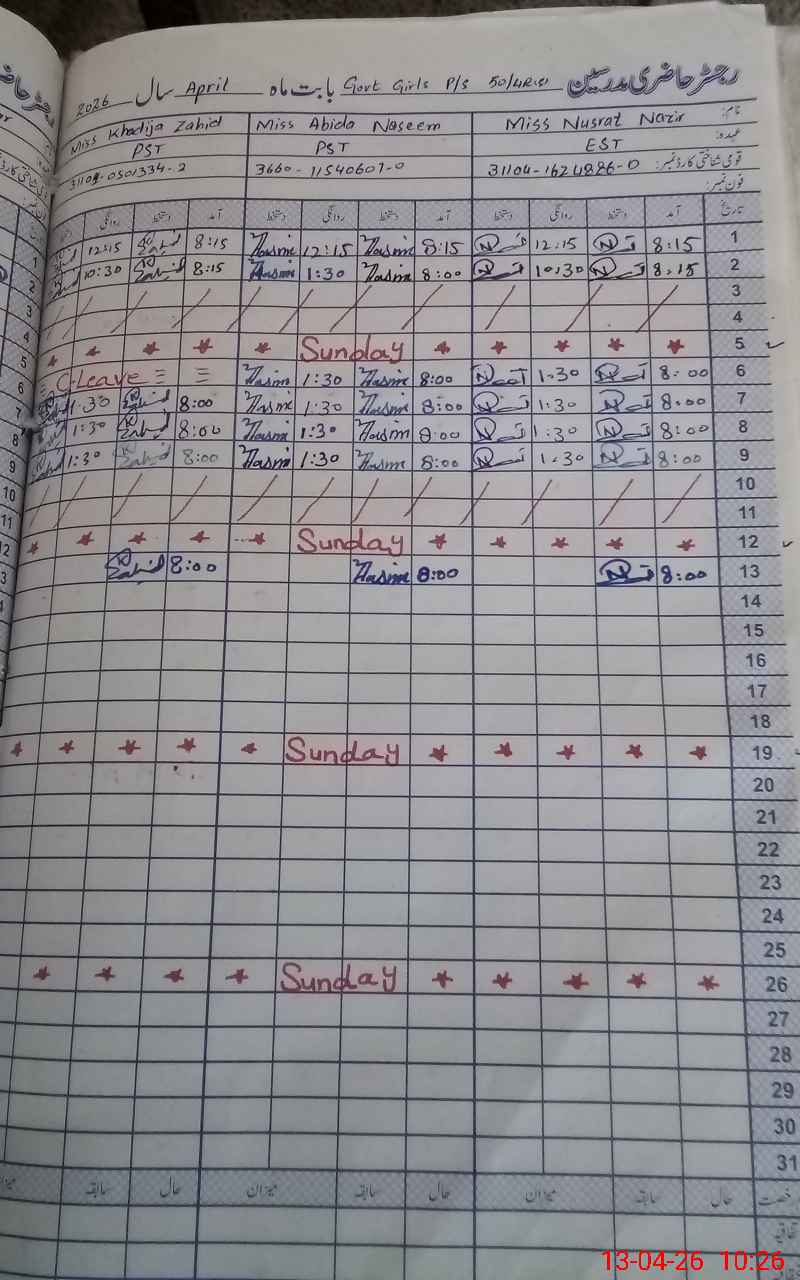 رجسٹر حاضری مدرسین Govt Girls P/S 50/4R بابت ماہ April سال 2026
نام: Miss Nusrat Nazir Miss Abida Naseem Miss Khadija Zahid
عہدہ: EST PST PST
قومی شناختی کارڈ نمبر: 31104-1624886-0 3660-11540607-0
فون نمبر:
تاریخ آمد دستخط روانگی دستخط آمد دستخط روانگی دستخط آمد دستخط روانگی دستخط
1 8:15 12:15 8:15 12:15 8:15 12:15
2 8:15 10:30 8:00 1:30 8:15 10:30
3
4
5 Sunday
6 8:00 1:30 8:00 1:30 C-Leave
7 8:00 1:30 8:00 1:30 8:00 1:30
8 8:00 1:30 8:00 1:30 8:00 1:30
9 8:00 1:30 8:00 1:30 8:00 1:30
10
11
12 Sunday
13 8:00 8:00 8:00
14
15
16
17
18
19 Sunday
20
21
22
23
24
25
26 Sunday
27
28
29
30
31
رخصت حال سابقہ میزان حال سابقہ میزان حال سابقہ
13-04-26 10:26